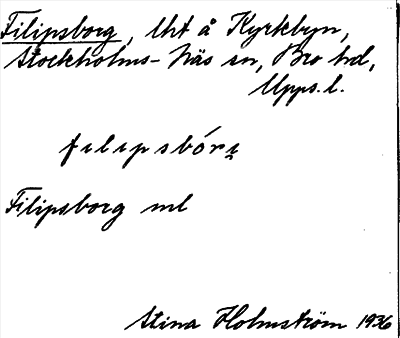 Filipsborg, lht å Kyrkbyn,
Stockholms-Näs sn, Bro hd,
Upps. l.
filipsbórį
Filipsborg ml
Stina Holmström 1936